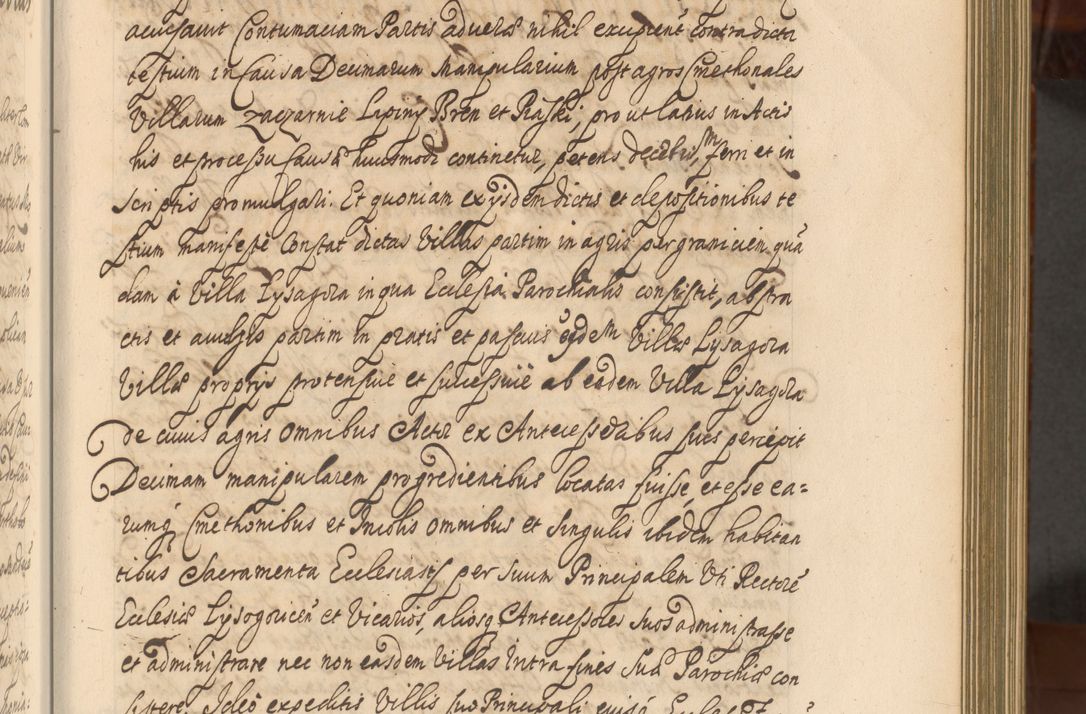 accusavit Contumaciam Partis adversæ nihil excipient̃ contra dicta
testium in Causa Decimarum Manipularium post agros Cmethonales
Villarum Zaczarnie Lipiny Bren et Raski, pro ut latius in Actis
his et processu Causæ huiusmodi continetur, petens decretum ferri et in
Scriptis promulgari. Et quoniam ex ijsdem dictis et depositionibus te
stium manifestè Constat dictas Villas partim in agris per graniciem quã
dam à Villa Lysagora in qua Ecclesia Parochialis consistit, abstra
ctis et avulsis partim in pratis et pascuis eiusdem Villæ Lysagora
Villæ proprijs protensivè et successivè ab eadem Villa Lysagora
de cuius agris omnibus Actor ex Antecessoribus suis percepit
Decimam manipularem progredientibus locatas fuisse, et esse ea=
rumq́ Cmethonibus et Incolis omnibus et singulis ibidem habitan
tibus Sacramenta Ecclesiastica per suum Principalem uti Rectorẽ
Ecclesiæ Lysogoricen̄ et Vicarios, aliosq Antecessores suos administrasse
et administrare nec non easdem Villas intra fines suæ Parochiæ con
sistere. Ideò expeditis Villis suo Principali eiusq́